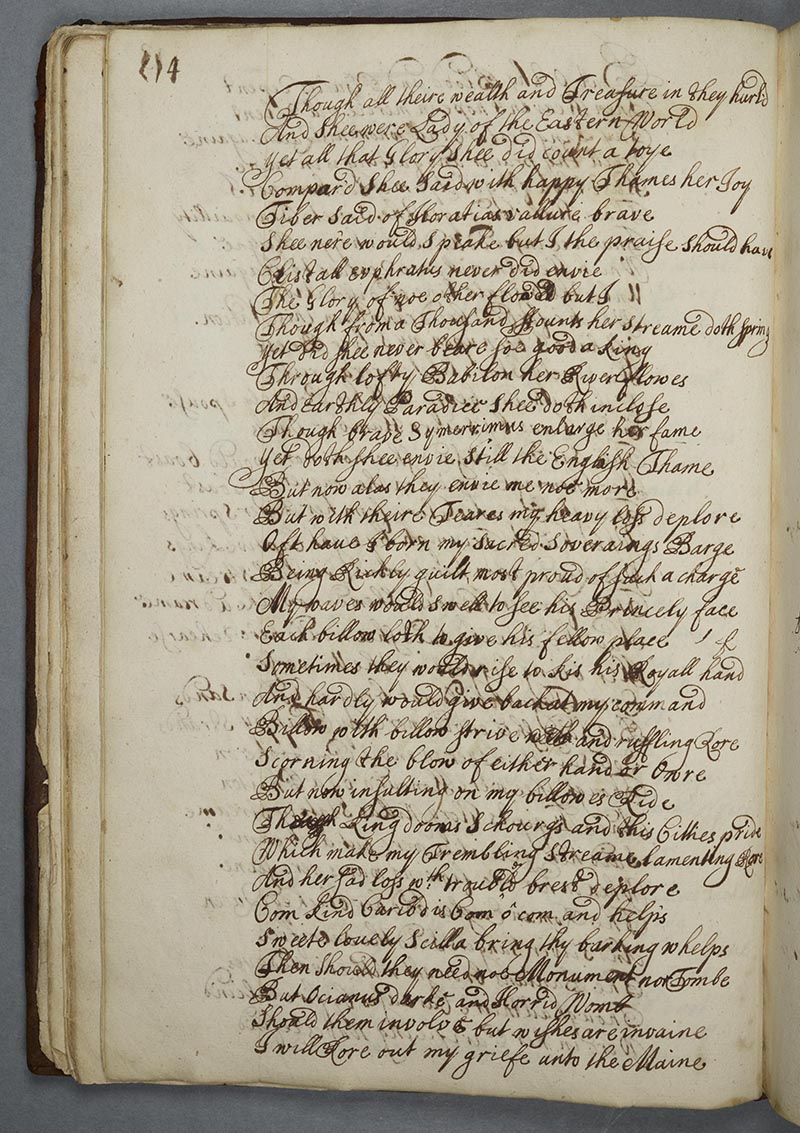 114
Though all theire wealth and Treasure in they hurld
And Shee were Lady of the Eastern World
Yet all that Glory Shee did count a toye
Compard Shee Said with happy Thames her Joy
Tiber Said of Horatias vallure brave
Shee nere would Speake but I the praise Should have
Cristall euphrates never did envie
The Glory of noe other flood but I
Though from a Thousand Founts her Streame doth Spring
Yet did shee never beare soe good a King
Through lofty Babilon her River flowes
And earthly Paradice Shee doth inclose
Though brave Symerrimus enlarge her fame
Yet doth shee envie Still the English Thame
But now alas they envie me noe more
But with theire Teares my heavy loss deplore
Oft have I born my Sacred Soveraings Barge
Being Richly guilt most proud of Such a charge
My waves would Swell to See his Princely face
Each billow loth to give his fellow place
Sometimes they would rise to kis his Royall hand
And hardly would give back at my command
Billow with billow strive and ruffling Rore
Scorning the blow of either hand or Owre
But now insulting on my billowes Ride
The Kingdooms Schourgs and this Citties pride
Which make my Trembling Streame lamenting Rore
And her Sad loss wth. troubld brest deplore
Com Kind Caribdis Com ô com and help's
Sweete lovely Scilla bring thy barking whelps
Then Should they need noe Monument nor Tombe
But Ocianus darke and Horrid Womb
Should them involve but wishes are invaine
I will Rore out my griefe unto the Maine